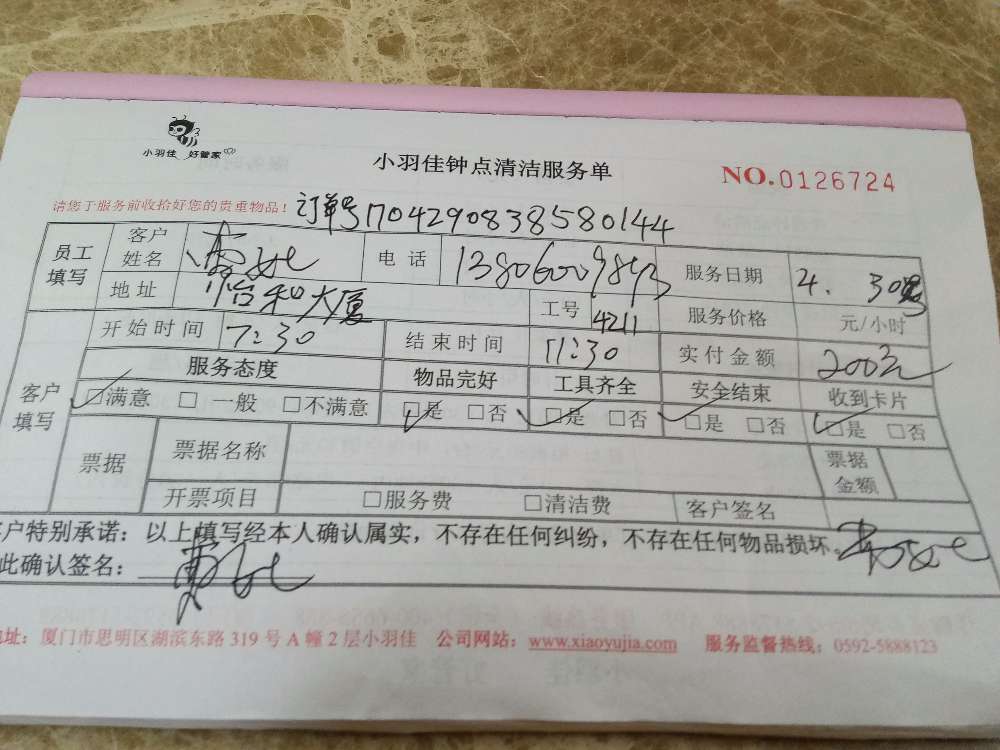 小羽佳 好管家
小羽佳钟点清洁服务单
NO.0126724
请您于服务前收拾好您的贵重物品！ 订单号1704290838580144
员工填写 客户姓名 电话 服务日期 4. 30
地址 怡和大厦 工号 4211 服务价格 元/小时
客户填写 开始时间 7:30 结束时间 11:30 实付金额 200元
服务态度 物品完好 工具齐全 安全结束 收到卡片
☑满意 □一般 □不满意 ☑是 □否 ☑是 □否 ☑是 □否 ☑是 □否
票据 票据名称 票据金额
开票项目 □服务费 □清洁费 客户签名
客户特别承诺：以上填写经本人确认属实，不存在任何纠纷，不存在任何物品损坏。
此确认签名：
地址：厦门市思明区湖滨东路319号A幢2层小羽佳 公司网站：www.xiaoyujia.com 服务监督热线：0592-5888123